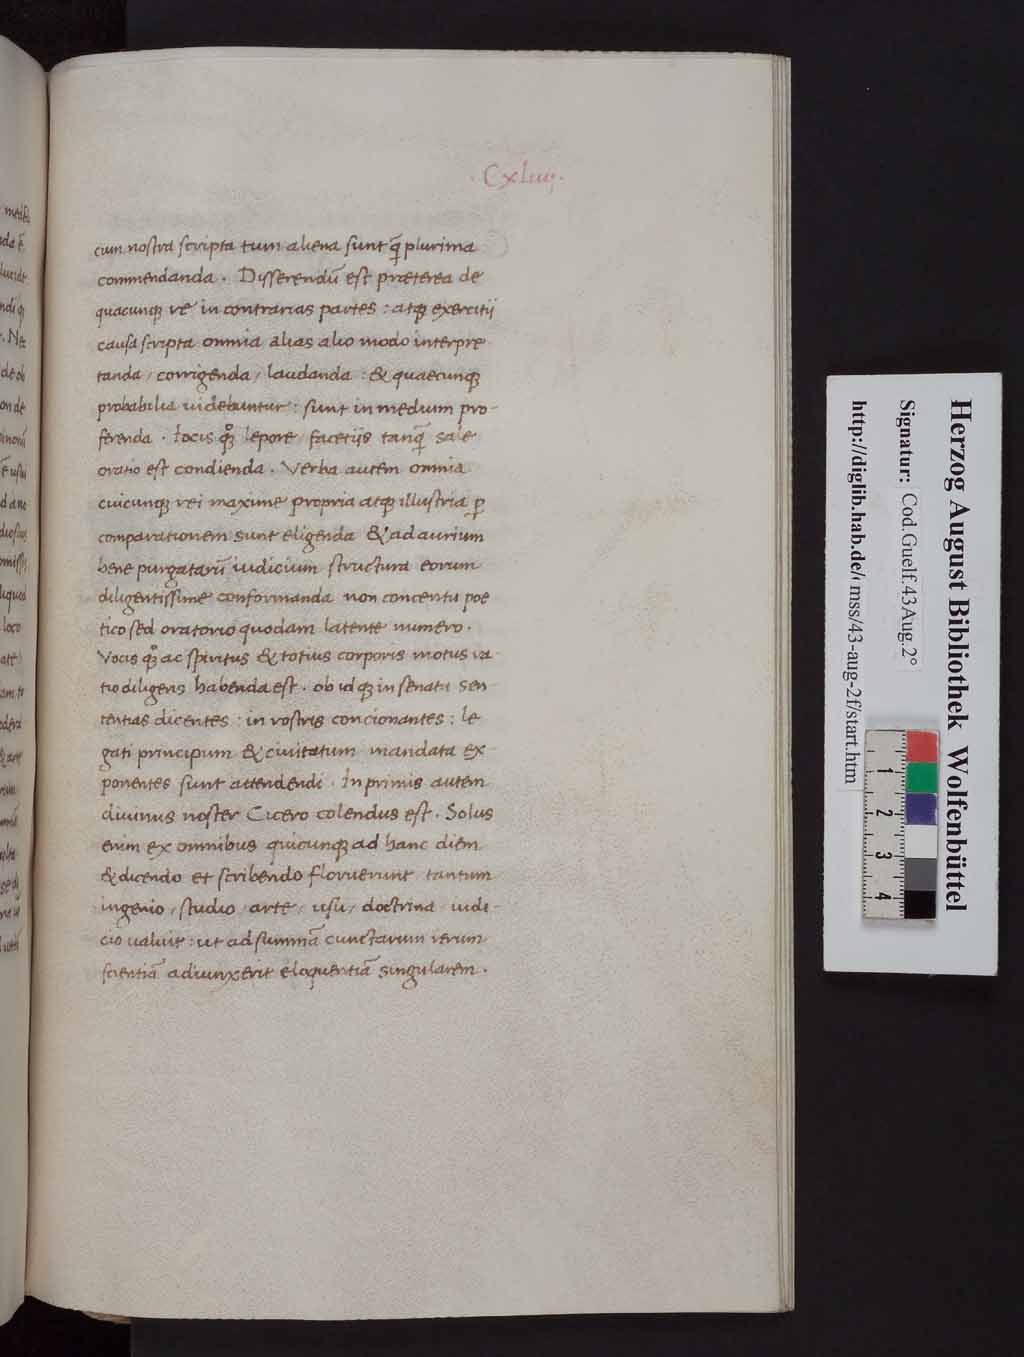 · Cxluij ·
cum nostra scripta tum aliena sunt q̄ plurima
commendanda . Disserendū est præterea de
quacunq; re in contrarias partes : atq; exercitij
causa scripta omnia alias alio modo interpre
tanda / corrigenda / laudanda : & quaecunq;
probabilia uidebuntur : sunt in medium pro-
ferenda . Iocis qͦq; lepore / facetijs tanq̄ sale
oratio est condienda . Verba autem omnia
cuicunq; rei maxime propria atq; illustria ꝑ
comparationem sunt eligenda & ad aurium
bene purgatarū iudicium structura eorum
diligentissime conformanda non concentu poe
tico sed oratorio quodam latente numero .
Vocis qͦq; ac spiritus & totius corporis motus ra
tio diligens habenda est . ob idq; in senatu sen
tentias dicentes : in rostris concionantes : le
gati principum & ciuitatum mandata ex
ponentes sunt attendendi . In primis autem
diuinus noster Cicero colendus est . Solus
enim ex omnibus quicunq; ad hanc diem
& dicendo et scribendo floruerunt tantum
ingenio / studio / arte / usu / doctrina iudi-
cio ualuit : ut ad summā cunctarum rerum
scientiā adiunxerit eloquentiā singularem .
Herzog August Bibliothek Wolfenbüttel
Signatur: Cod.Guelf.43 Aug.2°
http://diglib.hab.de/mss/43-aug-2f/start.htm
1 2 3 4